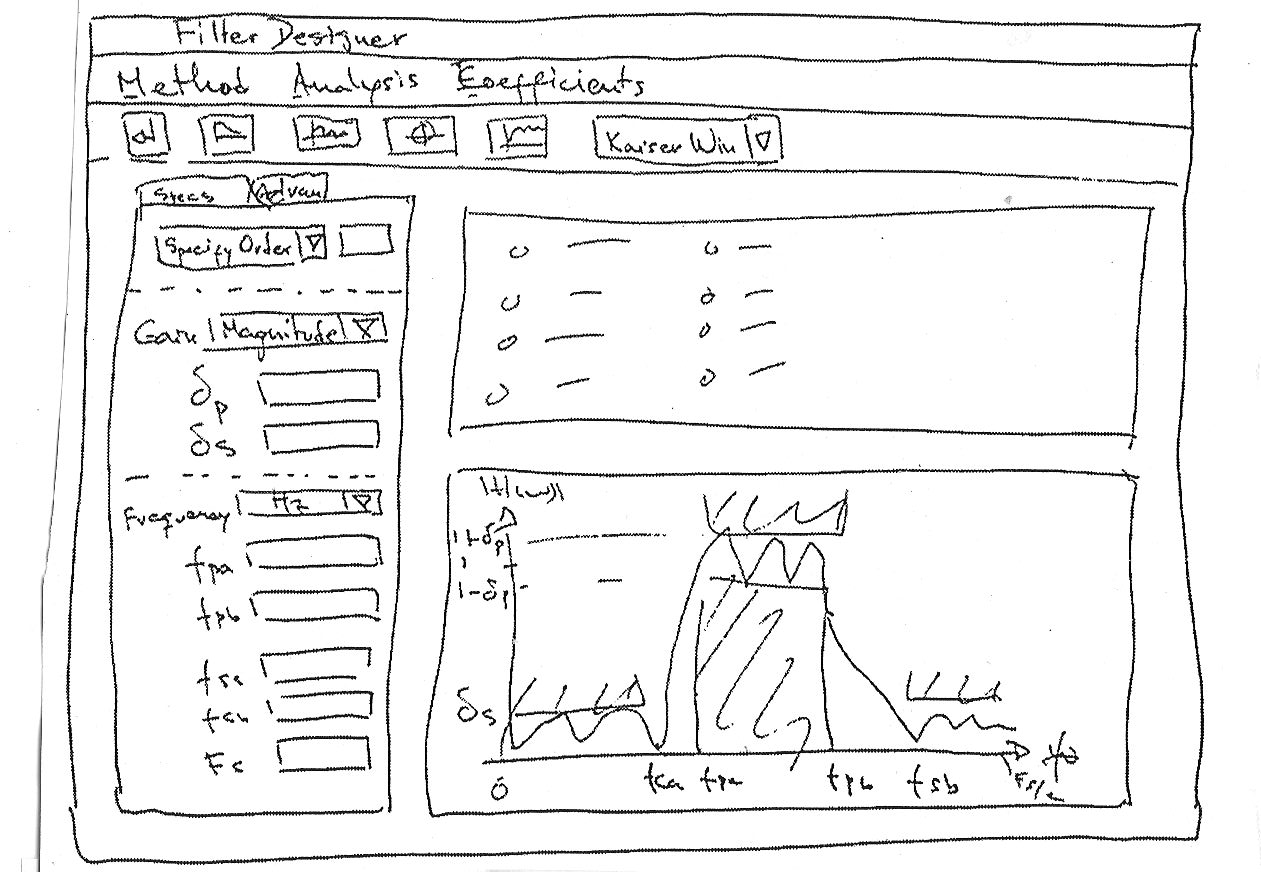 Filter Designer
Method Analysis Coefficients
Kaiser Win
Specs Advan
Specify Order
Gain Magnitude
δp
δs
Frequency Hz
fpa
fpb
fsa
fsb
Fs
|H(ω)|
1+δp
1
1-δp
δs
0 fsa fpa fpb fsb Fs/2 f